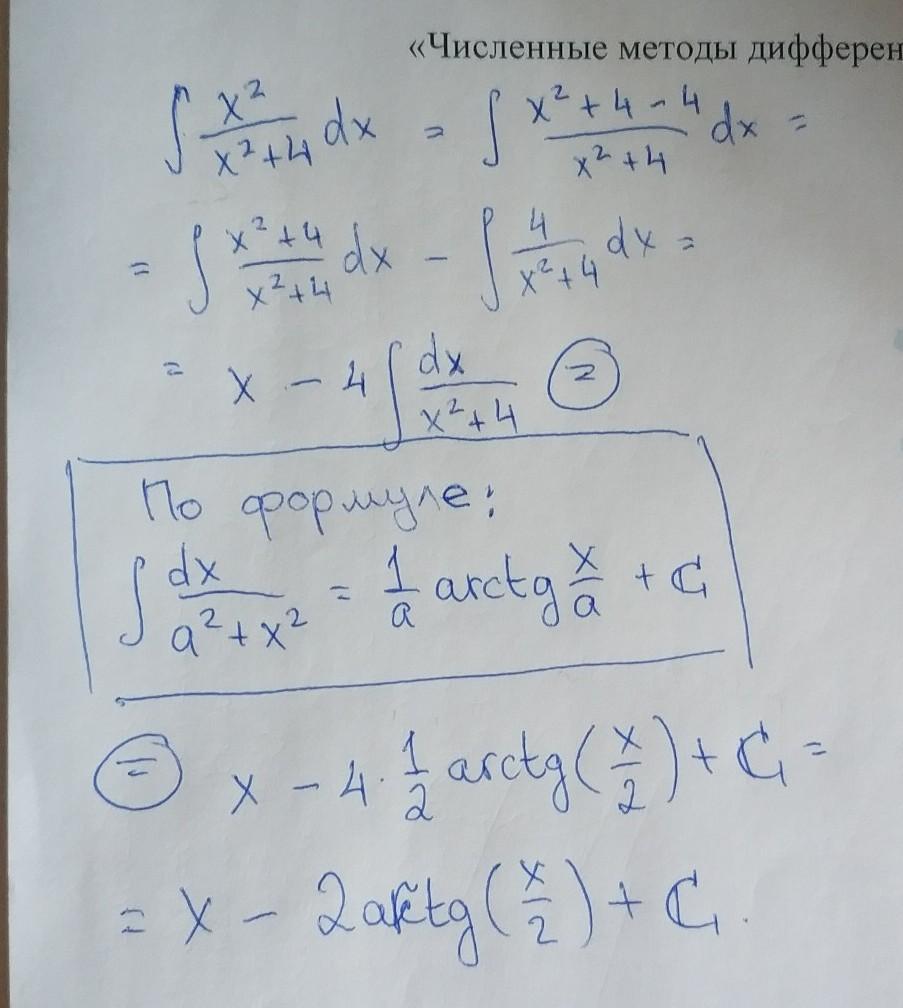 «Численные методы дифферен
∫ x²/(x²+4) dx = ∫ (x²+4-4)/(x²+4) dx =
= ∫ (x²+4)/(x²+4) dx - ∫ 4/(x²+4) dx =
= x - 4 ∫ dx/(x²+4) ⊜
По формуле:
∫ dx/(a²+x²) = 1/a arctg x/a + C
⊜ x - 4·1/2 arctg(x/2) + C =
= x - 2arctg(x/2) + C.